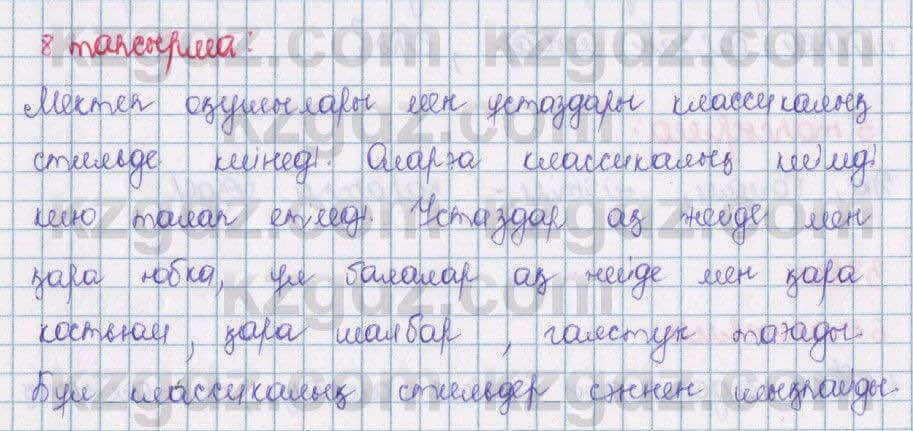 8 тапсырма:
Мектеп оқушылары мен ұстаздары классикалық
стильде киінеді. Оларға классикалық киімді
кию талап етіледі. Ұстаздар ақ жейде мен
қара юбка, ұл балалар ақ жейде мен қара
костюм, қара шалбар, галстук тағады.
Бұл классикалық стильдер сәннен шықпайды.
kzgdz.com
kzgdz.com
kzgdz.com